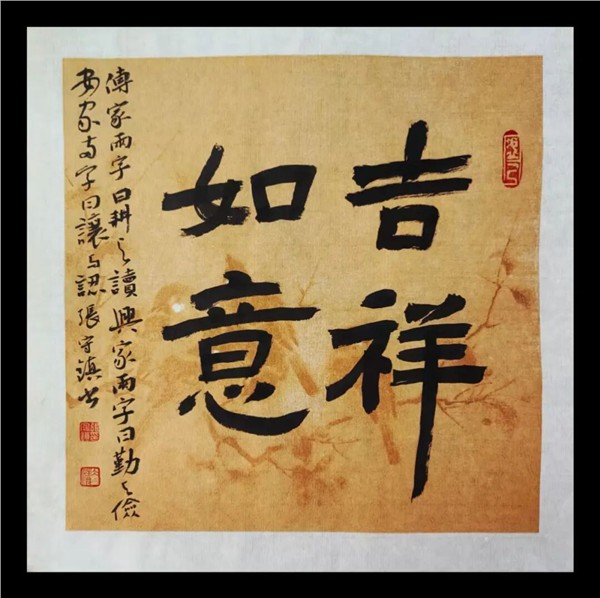 吉祥
如意
傳家兩字曰耕与讀興家兩字曰勤与儉
安家兩字曰讓与認張守鎮书